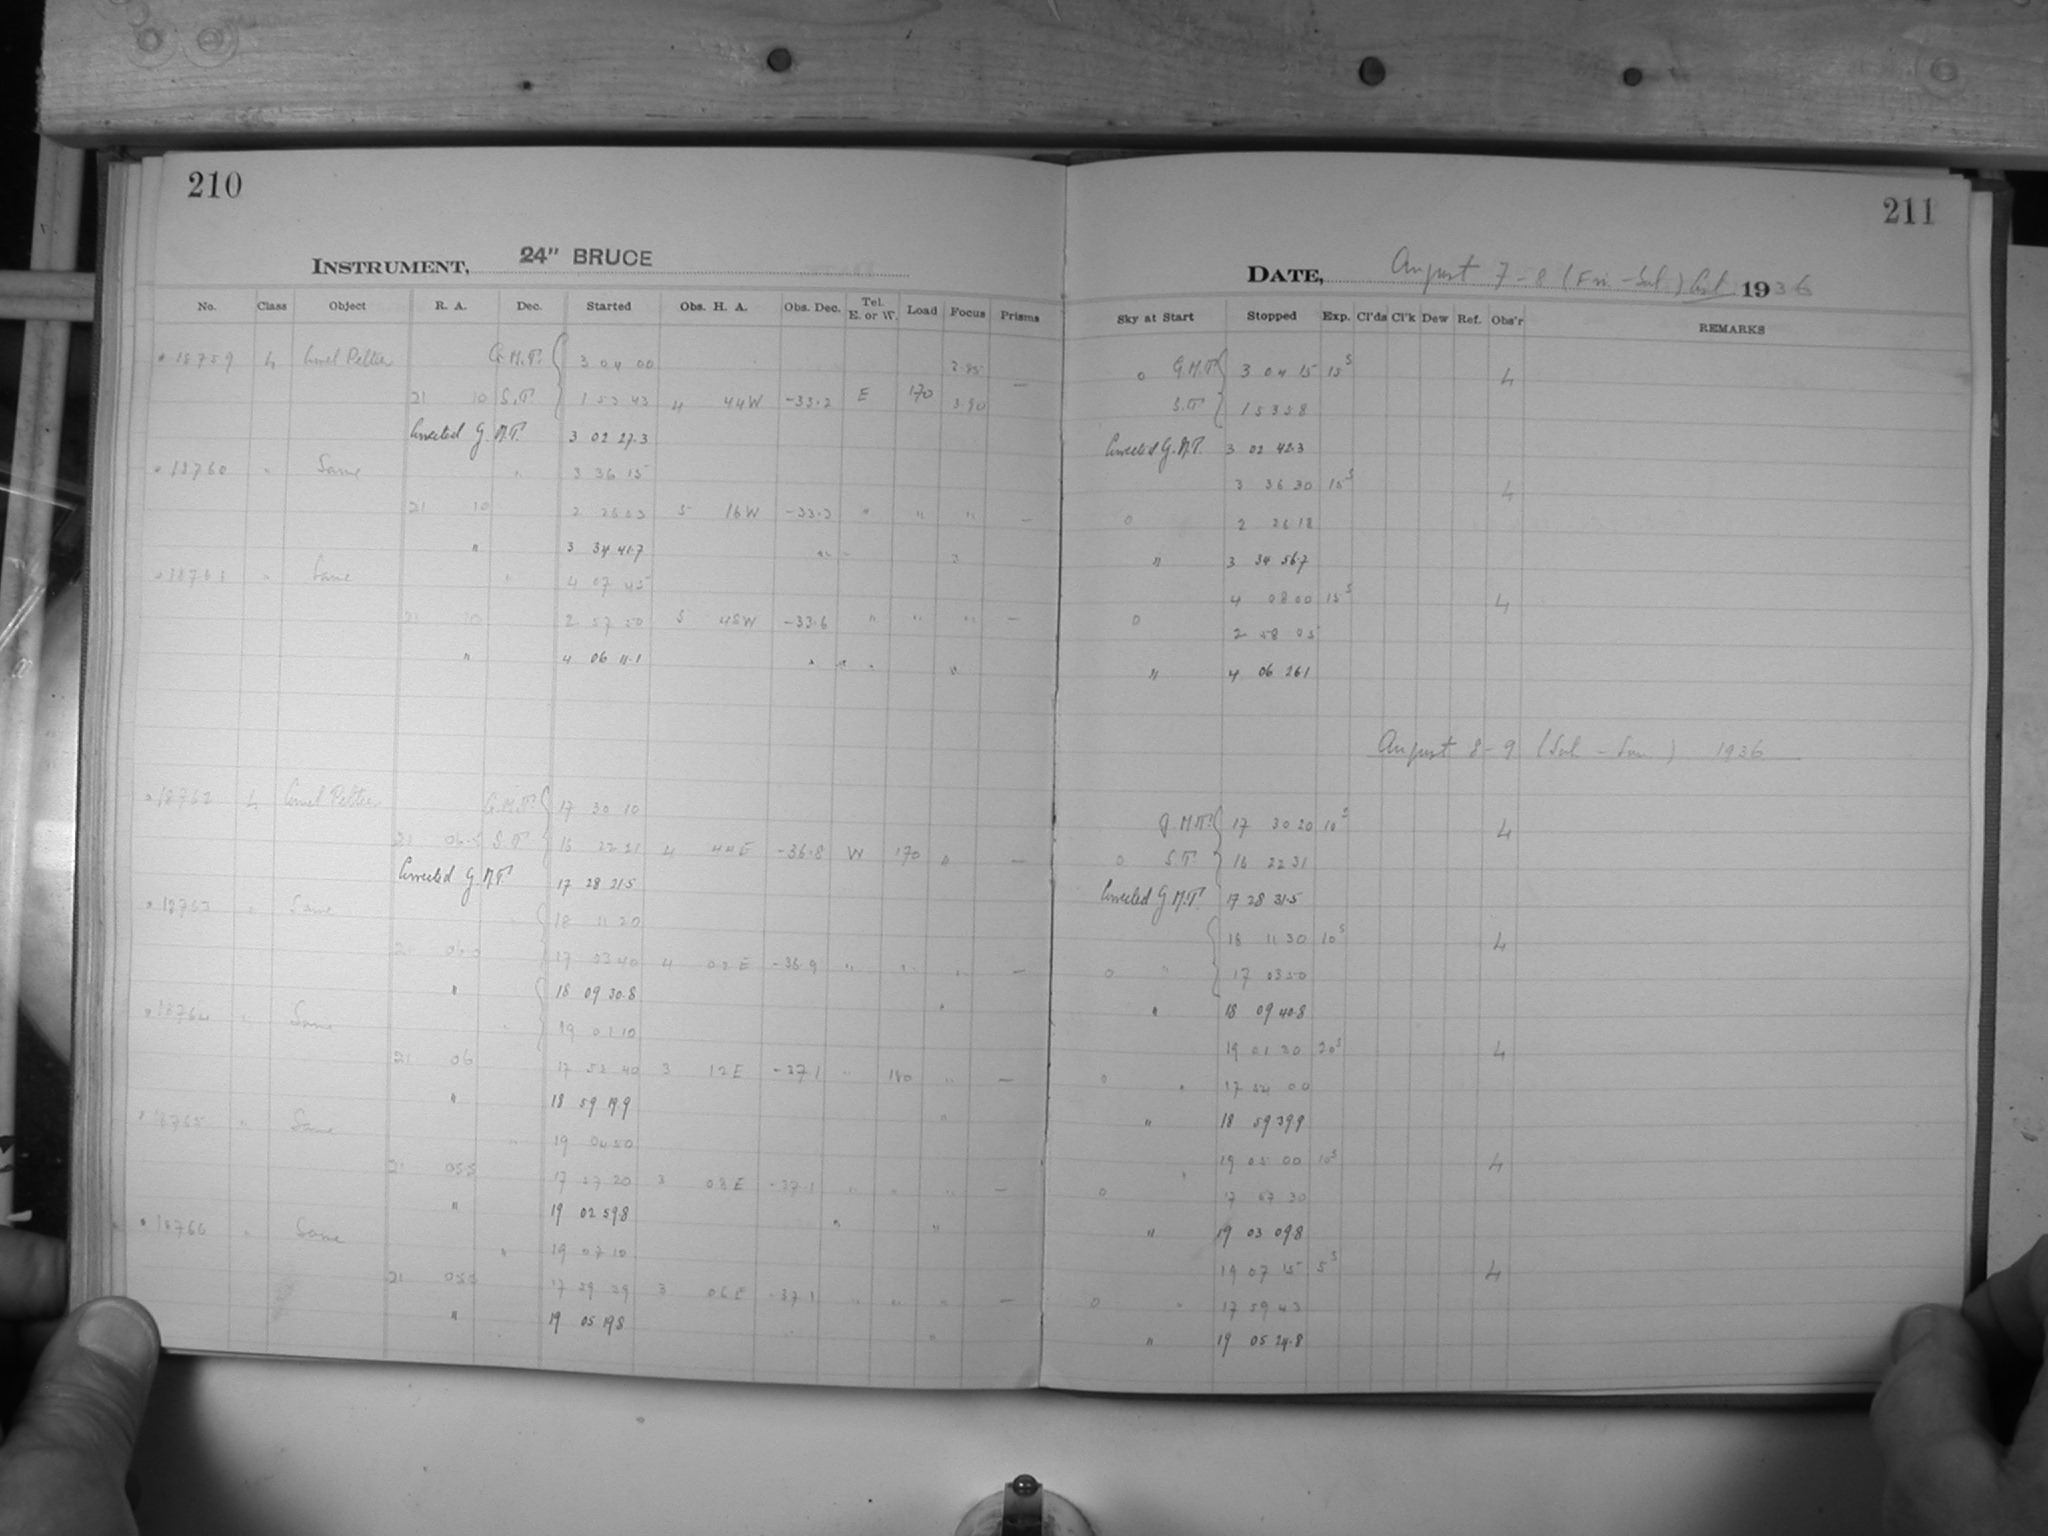 210
INSTRUMENT, 24" BRUCE
No. Class Object R. A. Dec. Started Obs. H. A. Obs. Dec. Tel. E. or W. Load Focus Prisms
18759 Comet Peltier G.M.T. 3 04 00 2.85
21 10 S.T. 1 53 43 4 44W -33.2 E 170 3.90 —
Corrected G.M.T. 3 02 27.3
18760 " Same " 3 36 15
21 10 2 26 03 5 16W -33.3 " " " —
" 3 34 41.7
18761 " Same " 4 07 45
21 10 2 57 50 5 48W -33.6 " " " —
" 4 06 11.1
18762 Comet Peltier G.M.T. 17 30 10
21 06.5 S.T. 16 22 21 4 44E -36.8 W 170 " —
Corrected G.M.T. 17 28 21.5
18763 " Same " 18 11 20
21 17 03 40 4 02E -36.9 " " " —
" 18 09 30.8
18764 " Same " 19 01 10
21 06 17 53 40 3 12E -37.1 " 180 " —
" 18 59 19.9
18765 " Same " 19 04 50
21 055 17 57 20 3 08E -37.1 " " " —
" 19 02 59.8
18766 " Same " 19 07 10
21 055 17 59 39 3 06E -37.1 " " " —
" 19 05 19.8
211
DATE, August 7-8 (Fri.-Sat.) 1936
Sky at Start Stopped Exp. Cl'ds Cl'k Dew Ref. Obs'r REMARKS
0 G.M.T. 3 04 15 15s
S.T. 1 53 58
Corrected G.M.T. 3 02 42.3
3 36 30 15s
0 2 26 18
" 3 34 56.7
4 08 00 15s
0 2 58 05
" 4 06 26.1
August 8-9 (Sat - Sun) 1936
G.M.T. 17 30 20 10s
0 S.T. 16 22 31
Corrected G.M.T. 17 28 31.5
18 11 30 10s
0 " 17 03 50
" 18 09 40.8
19 01 30 20s
0 " 17 54 00
" 18 59 39.9
19 05 00 10s
0 " 17 57 30
" 19 03 09.8
19 07 15 5s
0 " 17 59 43
" 19 05 24.8